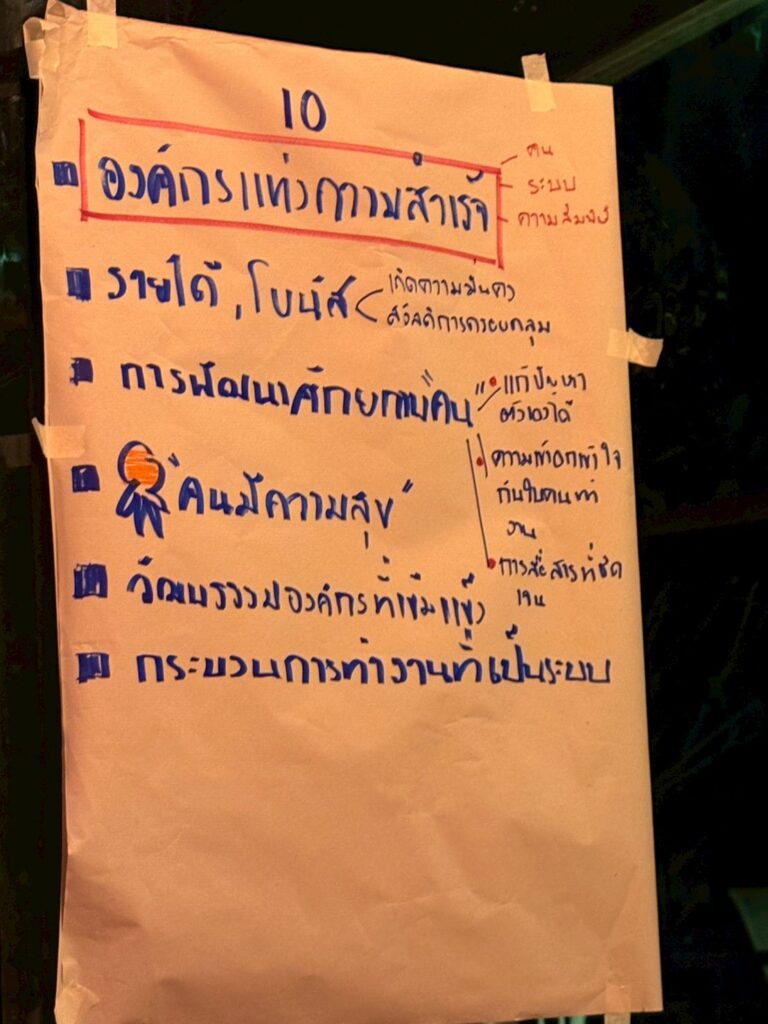 10
องค์กรแห่งความสำเร็จ
คน
ระบบ
ความสัมพันธ์
รายได้ , โบนัส
เกิดความมั่นคง
สวัสดิการครอบคลุม
การพัฒนาศักยภาพคน"
แก้ปัญหา
ตัวเองได้
ความเข้าอกเข้าใจ
กันในคนทำ
งาน
การสื่อสารที่ชัด
เจน
"คนมีความสุข"
วัฒนธรรมองค์กรที่เข้มแข็ง
กระบวนการทำงานที่เป็นระบบ